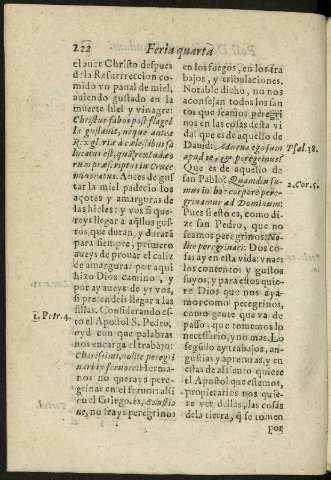 222 Feria quarta
el auer Christo despues
de la Resurrreccion co-
mido vn panal de miel,
auiendo gustado en la
muerte hiel y vinagre:
Christus fabos post flagel
la gustauit, neque antea
Rex gloriæ à cælestibus sa
lutatus est, quàm
rum proscriptus in Cruce
Antes de gus
tar la miel padecio los
açotes y amarguras de
las hieles: y vos si que-
reys llegar a aq̃llos gus-
tos, que duran, y durarã
para siempre, primero
aueys de prouar el caliz
de amarguras: por aqui
hizo Dios camino, y
por ay aueys de yr vos,
si pretendeis llegar a las
sillas. Considerando es-
to el Apostol S. Pedro,
1. Petr. 4.
oyd con que palabras
nos encarga el trabajo:
Charissimi, nolite peregri
nari in feruore: Herma-
nos no querays pere-
grinar en el feruor: alli
ne, no seays peregrinos
en los fuegos, en los tra
bajos, y tribulaciones.
Notable dicho, no nos
aconsejan todos los san
tos que seamos peregri
nos en las cosas desta vi
da: que es de aquello de
Dauid: Aduena ego sum
Psal. 38.
apud te, & peregrinus?
Que es de aquello de
san Pablo: Quandiu su-
mus in hoc corpore pere-
2. Cor. 5.
grinamur ad Dominum:
Pues si esto es, como di-
ze san Pedro, que no
seamos peregrinos: No-
lite peregrinari: Dos co-
sas ay en esta vida: vnas
los contentos y gustos
suyos, y para estos quie-
re Dios que nos aya-
mos como peregrinos,
como gente que va de
passo, que tomemos lo
necessario, y no mas. Lo
segũdo ay trabajos, an-
gustias y apreturas, y en
estas de assiento quiere
el Apostol que estemos,
proprietarios nos quie-
re ver dellas, las cosas
de la tierra, q̃ se tomen
por